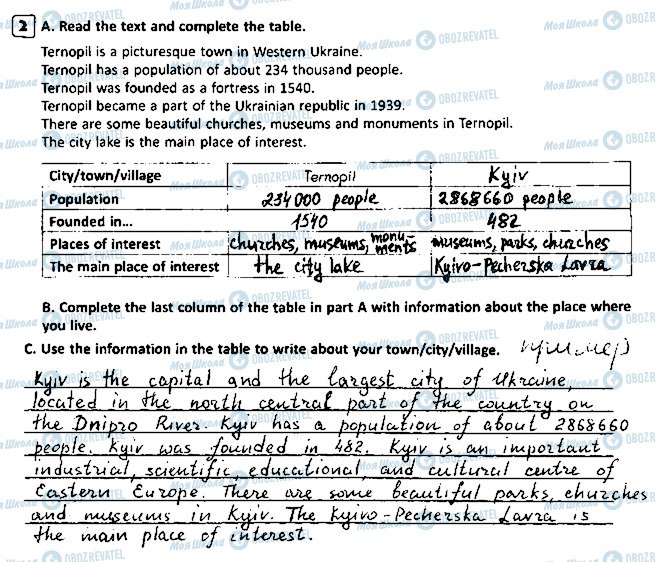 2 A. Read the text and complete the table.
Ternopil is a picturesque town in Western Ukraine.
Ternopil has a population of about 234 thousand people.
Ternopil was founded as a fortress in 1540.
Ternopil became a part of the Ukrainian republic in 1939.
There are some beautiful churches, museums and monuments in Ternopil.
The city lake is the main place of interest.
City/town/village Ternopil Kyiv
Population 234 000 people 2868660 people
Founded in... 1540 482
Places of interest churches, museums, monu-ments museums, parks, churches
The main place of interest the city lake Kyivo-Pecherska Lavra
B. Complete the last column of the table in part A with information about the place where
you live.
C. Use the information in the table to write about your town/city/village. пример)
Kyiv is the capital and the largest city of Ukraine,
located in the north central part of the country on
the Dnipro River. Kyiv has a population of about 2868660
people. Kyiv was founded in 482. Kyiv is an important
industrial, scientific, educational, and cultural centre of
Eastern Europe. There are some beautiful parks, churches
and museums in Kyiv. The Kyivo-Pecherska Lavra is
the main place of interest.
Моя Школа OBOZREVATEL